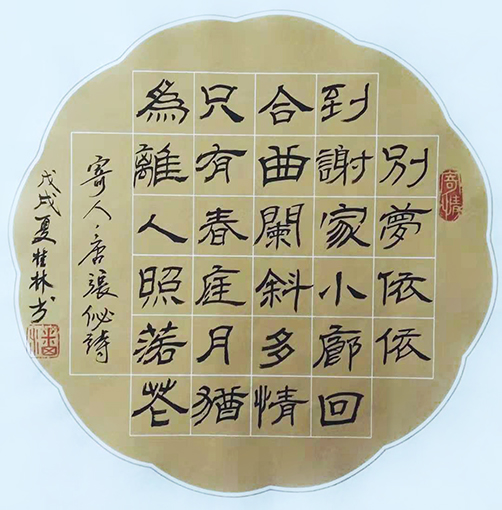 別夢依依
到謝家小廊回
合曲闌斜多情
只有春庭月猶
為離人照落花
寄人、唐張佖詩
戊戌夏桂林书
寄情